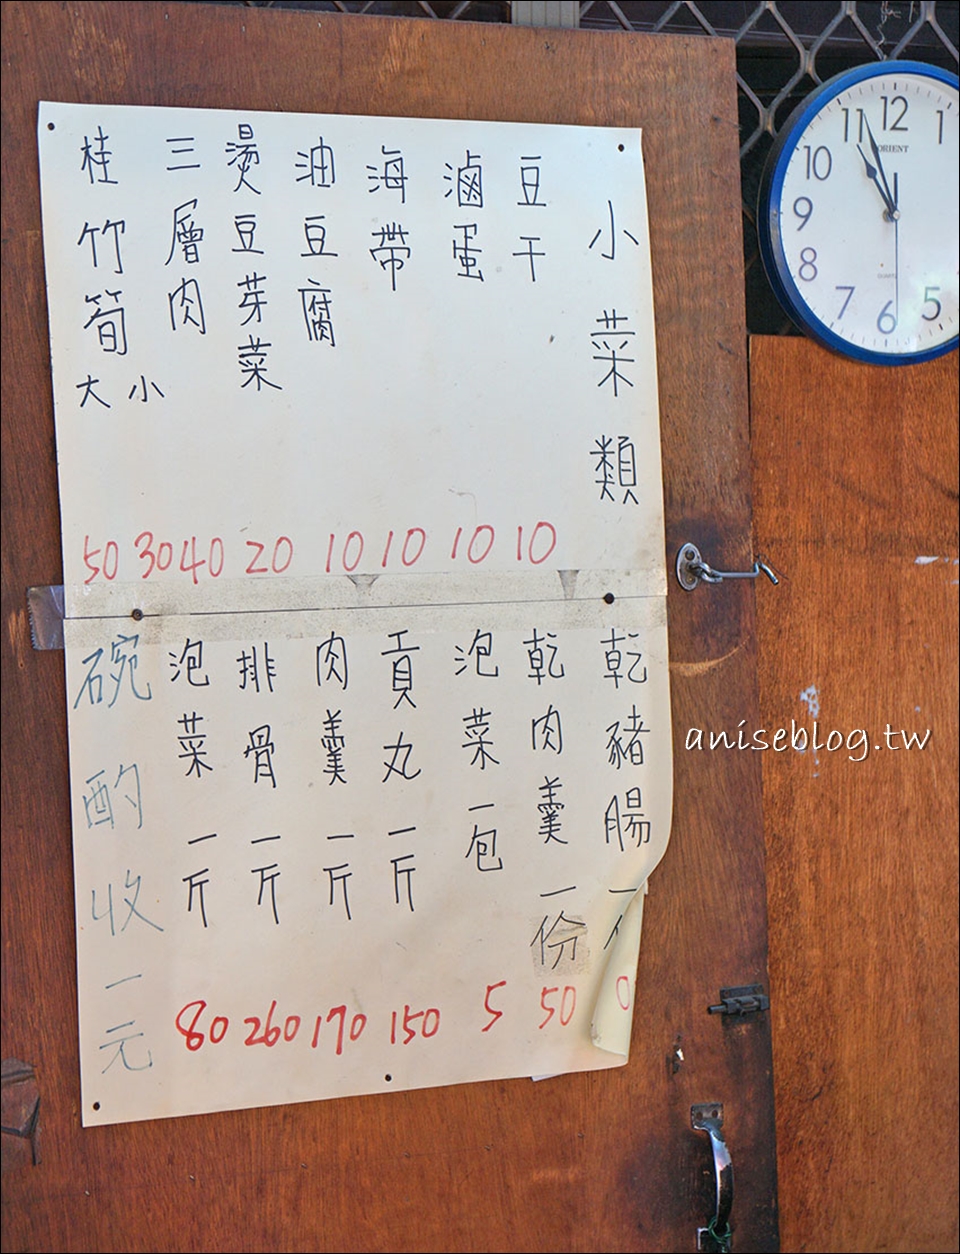 小菜類
豆干 10
滷蛋 10
海帶 10
油豆腐 10
燙豆芽菜 20
三層肉 40
桂竹筍 小 30 大 50
乾豬腸一 0
乾肉羹一份 50
泡菜一包 5
貢丸一斤 150
肉羹一斤 170
排骨一斤 260
泡菜一斤 80
碗酌收一元
12
1
5
6
7
8
9
10
11
ORIENT
QUARTZ
aniseblog.tw